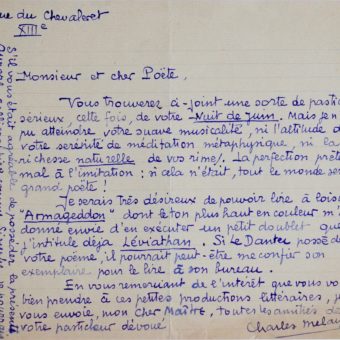 rue du Chevaleret
XIIIe
Monsieur et cher Poëte,
Vous trouverez ci-joint une sorte de pastic
sérieux, cette fois, de votre Nuit de Juin. Mais je n
pu atteindre votre suave musicalité, ni l'altitude d
votre sérénité de méditation métaphysique, ni la
richesse naturelle de vos rimes. La perfection prête
mal à l'imitation : si cela n'était, tout le monde ser
grand poëte !
Je serais très désireux de pouvoir lire à lois
"Armageddon" dont le ton plus haut en couleur m'
donné envie d'en exécuter un petit doublet que
j'intitule déjà Léviathan. Si Le Dantec possède
votre poëme, il pourrait peut-être me confier son
exemplaire pour le lire à son bureau.
En vous remerciant de l'intérêt que vous vo
bien prendre à ces petites productions littéraires, je
vous envoie, mon Cher Maître, toutes les amitiés de
votre pasticheur dévoué
Charles
S'il vous était agréable de posséder la présente